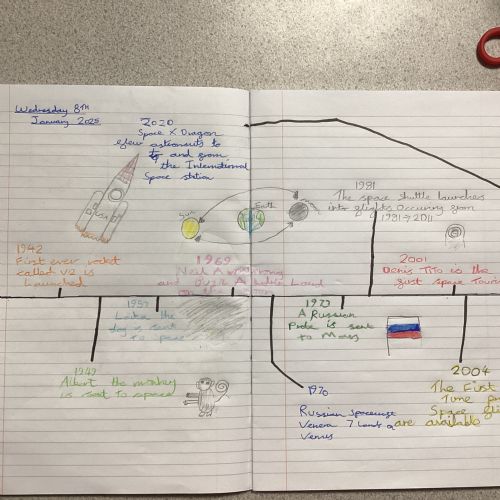 Wednesday 8th
January 2025
2020
Space X Dragon
flew astronauts to
and from
the International
Space station
Sun
Earth
moon
1981
The space shuttle launches
into flights Occuring from
1981→2011
1942
First ever rocket
called V2 is
launched
1969
Neil Armstrong
and Buzz A Land
on the
2001
Denis Tito is the
first space Touris
1957
Laika the
dog is sent
To space
1973
A Russian
Probe is sent
to Mars
1949
Albert the monkey
is sent To space
1970
Russian Spacecraft
Venera 7 Lands
Venus
2004
The First
Time
Space
are available